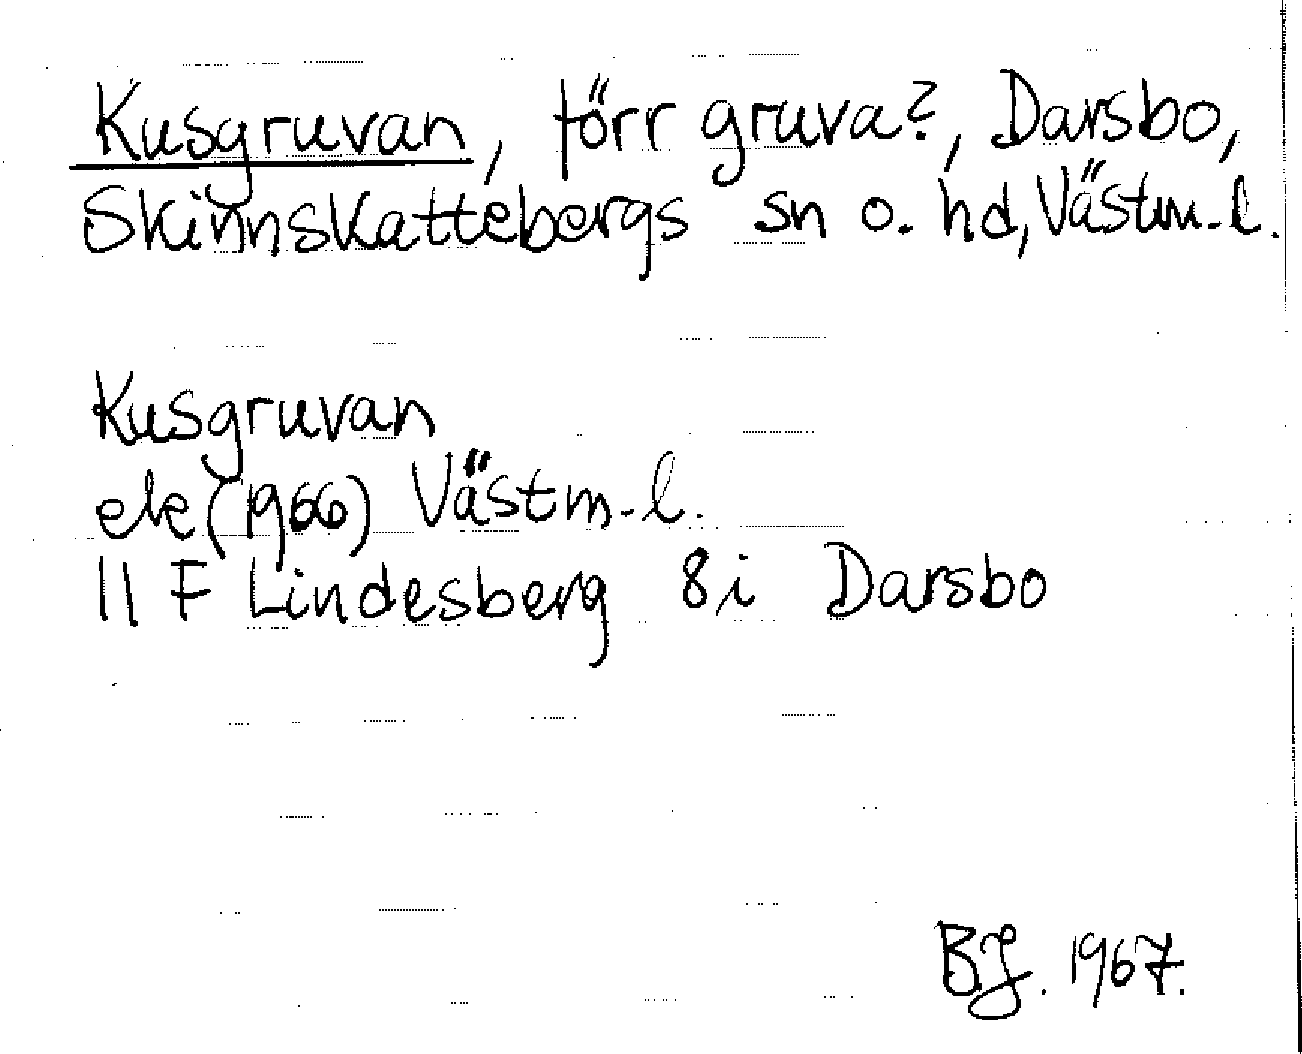 Kusgruvan, törr gruva?, Darsbo,
Skinnskattebergs sn o. hd, Västm.l.
Kusgruvan
ek (1966) Västm.l.
11 F Lindesberg 8i Darsbo
BJ. 1967.